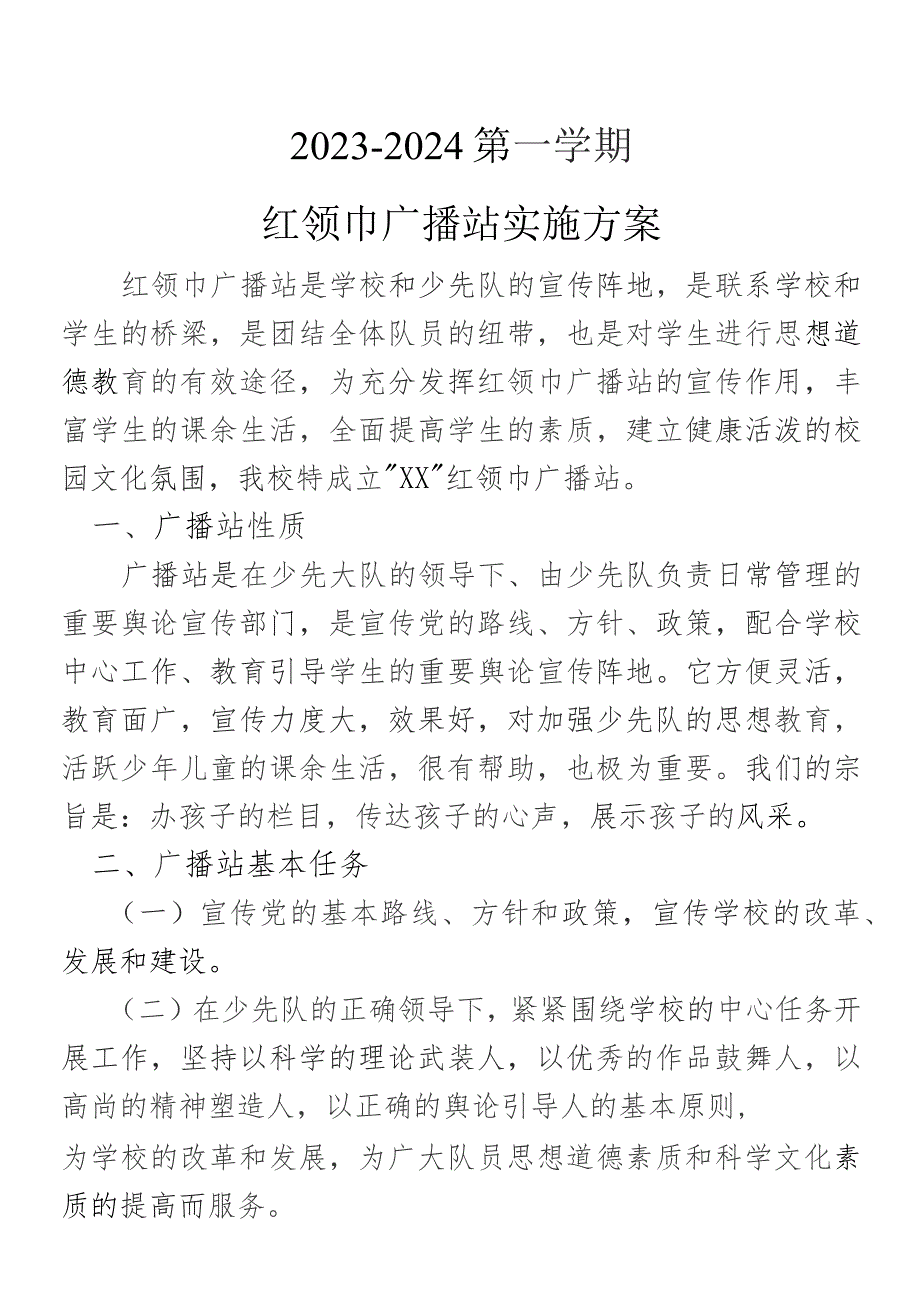 2023-2024第一学期
红领巾广播站实施方案
红领巾广播站是学校和少先队的宣传阵地，是联系学校和
学生的桥梁，是团结全体队员的纽带，也是对学生进行思想道
德教育的有效途径，为充分发挥红领巾广播站的宣传作用，丰
富学生的课余生活，全面提高学生的素质，建立健康活泼的校
园文化氛围，我校特成立"XX"红领巾广播站。
一、广播站性质
广播站是在少先大队的领导下、由少先队负责日常管理的
重要舆论宣传部门，是宣传党的路线、方针、政策，配合学校
中心工作、教育引导学生的重要舆论宣传阵地。它方便灵活，
教育面广，宣传力度大，效果好，对加强少先队的思想教育，
活跃少年儿童的课余生活，很有帮助，也极为重要。我们的宗
旨是：办孩子的栏目，传达孩子的心声，展示孩子的风采。
二、广播站基本任务
（一）宣传党的基本路线、方针和政策，宣传学校的改革、
发展和建设。
（二）在少先队的正确领导下，紧紧围绕学校的中心任务开
展工作，坚持以科学的理论武装人，以优秀的作品鼓舞人，以
高尚的精神塑造人，以正确的舆论引导人的基本原则，
为学校的改革和发展，为广大队员思想道德素质和科学文化素
质的提高而服务。